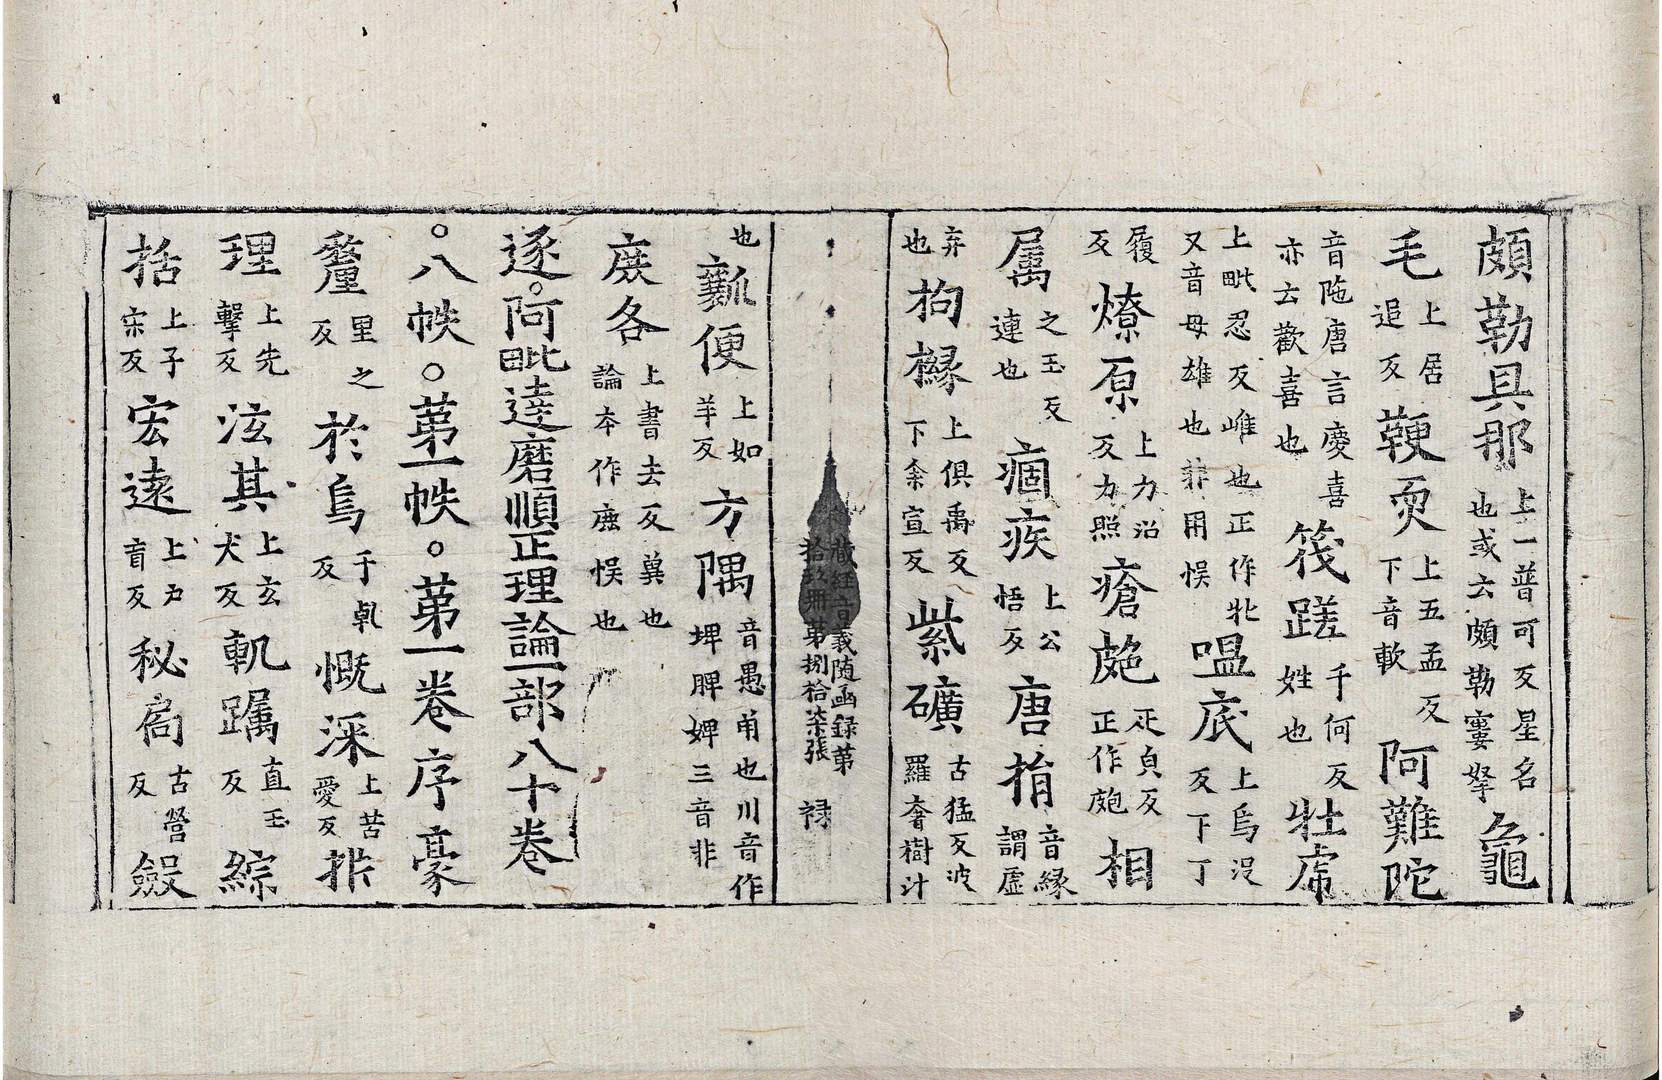 頗勒具那上一普可反星名也或云頗勒窶拏龜
毛上居追反鞕耎上五孟反下音軟阿難陀
音陁唐言慶喜亦云歡喜也筏蹉千何反姓也牡虎
上毗忍反雌也正作牝又音母雄也非用悮嗢底上烏沒反下丁
履反燎原上力沼反力照反瘡皰疋皃反正作皰相
屬之玉反連也痼疾上公悟反唐捐音縁謂虛
弃也枸櫞上俱禹反下余宣反紫礦古猛反波羅奢樹汁
藏経音義随函録第拾玖冊第捌拾柒張 禄
也瓤便上如羊反方隅音愚甫也川音作埤脾婢三音非
庻各上書去反兾也論夲作庶悮也
逐。阿毗達磨順正理論一部八十卷
。八帙。第一帙。第一卷序豪
釐里之反於烏于乹反慨深上苦愛反排
理上先擊反泫其上玄犬反軌躅直玉反綜
括上子宋反宏遠上户盲反秘扄古營反䥫